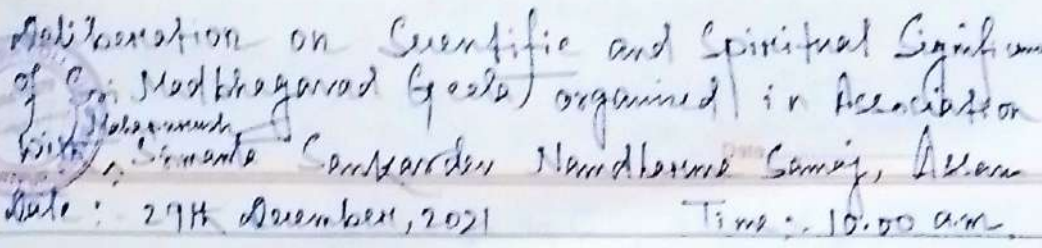 Deliberation on Scientific and Spiritual Significan
of Sri Madbhagavad Geeta) organised in Association
with Mahapurush Srimanta Sankardev Namdharma Samaj, Assam
Date: 29th December, 2021 Time:- 10.00 a.m.